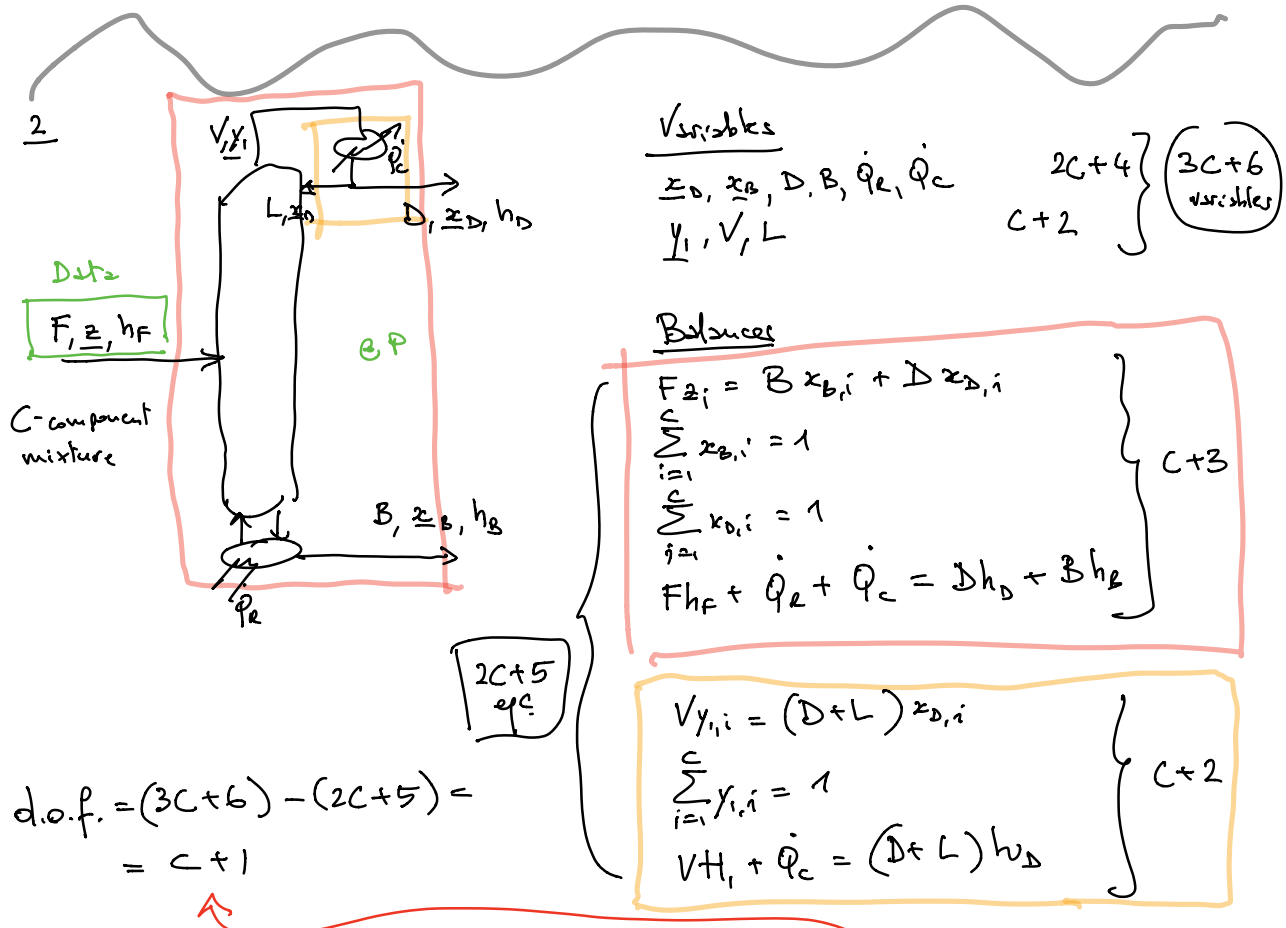 2
V, y₁
Q̇c
L, x_D
D, x_D, h_D
Data
F, z, h_F
@ P
C-component
mixture
B, x_B, h_B
Q̇_R
Variables
x_D, x_B, D, B, Q̇_R, Q̇_C
2C+4
y₁, V, L
C+2
3C+6
variables
Balances
F z_i = B x_B,i + D x_D,i
∑_{i=1}^{C} x_B,i = 1
∑_{i=1}^{C} x_D,i = 1
F h_F + Q̇_R + Q̇_C = D h_D + B h_B
C+3
2C+5
V y_1,i = (D+L) x_D,i
∑_{i=1}^{C} y_1,i = 1
V H_1 + Q̇_C = (D+L) h_D
C+2
d.o.f. = (3C+6) - (2C+5) =
= C+1